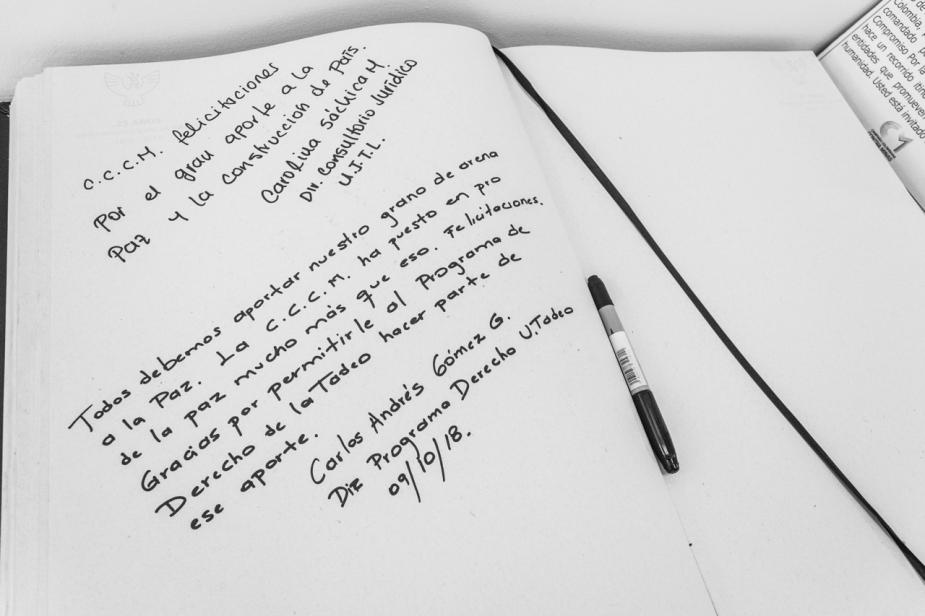 C.C.C.M. felicitaciones
por el gran aporte a la
Paz y la construcción de País.
Carolina Sáchica M.
Dir. Consultorio Jurídico
U.J.T.L.
Todos debemos aportar nuestro grano de arena
a la Paz. La C.C.C.M. ha puesto en pro
de la paz mucho más que eso. Felicitaciones.
Gracias por permitirle al Programa de
Derecho de la Tadeo hacer parte de
ese aporte.
Carlos Andrés Gómez G.
Dir Programa Derecho U.Tadeo
09/10/18.
Colombia,
comandado
Compromiso Por la
hace un recorrido
entidades que promueven
humanidad. Usted está invitado
C1